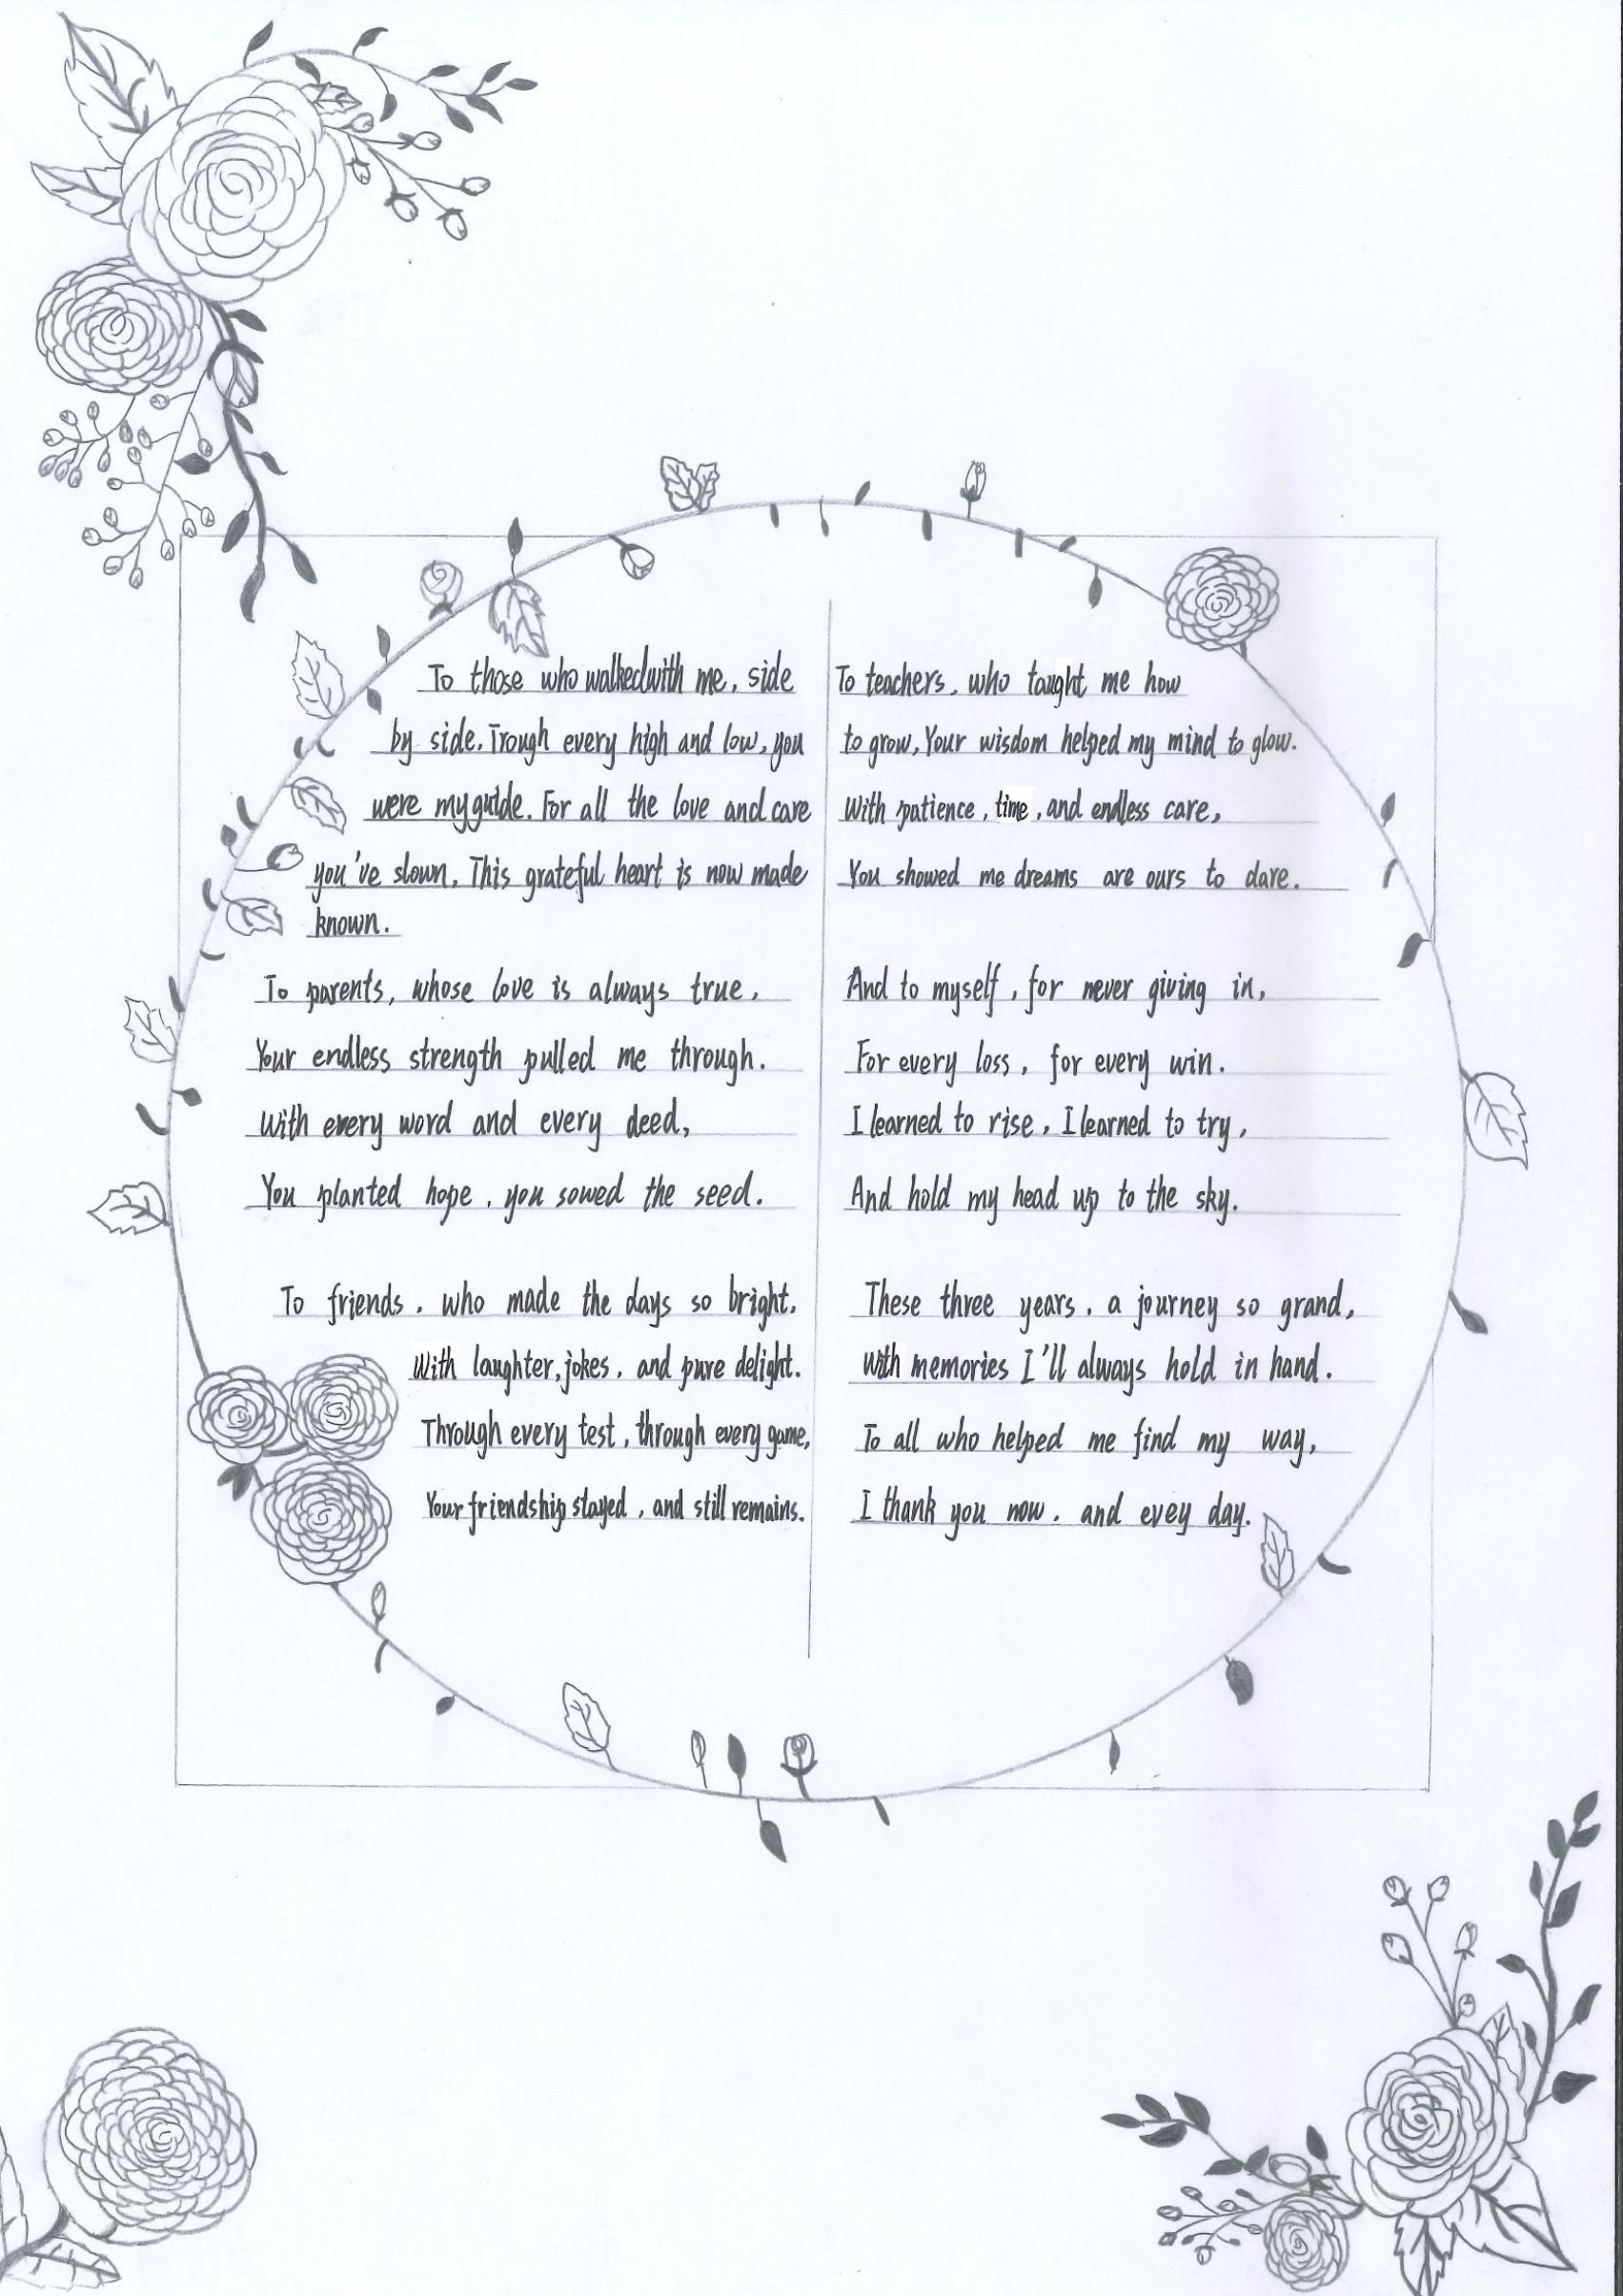 To those who walked with me, side
by side. Trough every high and low, you
were my guide. For all the love and care
you've slown, This grateful heart is now made
known.
To parents, whose love is always true,
Your endless strength pulled me through.
With every word and every deed,
You planted hope, you sowed the seed.
To friends, who made the days so bright,
With laughter, jokes, and pure delight.
Through every test, through every game,
Your friendship stayed, and still remains.
To teachers, who taught me how
to grow, Your wisdom helped my mind to glow.
With patience, time, and endless care,
You showed me dreams are ours to dare.
And to myself, for never giving in,
For every loss, for every win.
I learned to rise, I learned to try,
And hold my head up to the sky.
These three years, a journey so grand,
With memories I'll always hold in hand.
To all who helped me find my way,
I thank you now, and evey day.